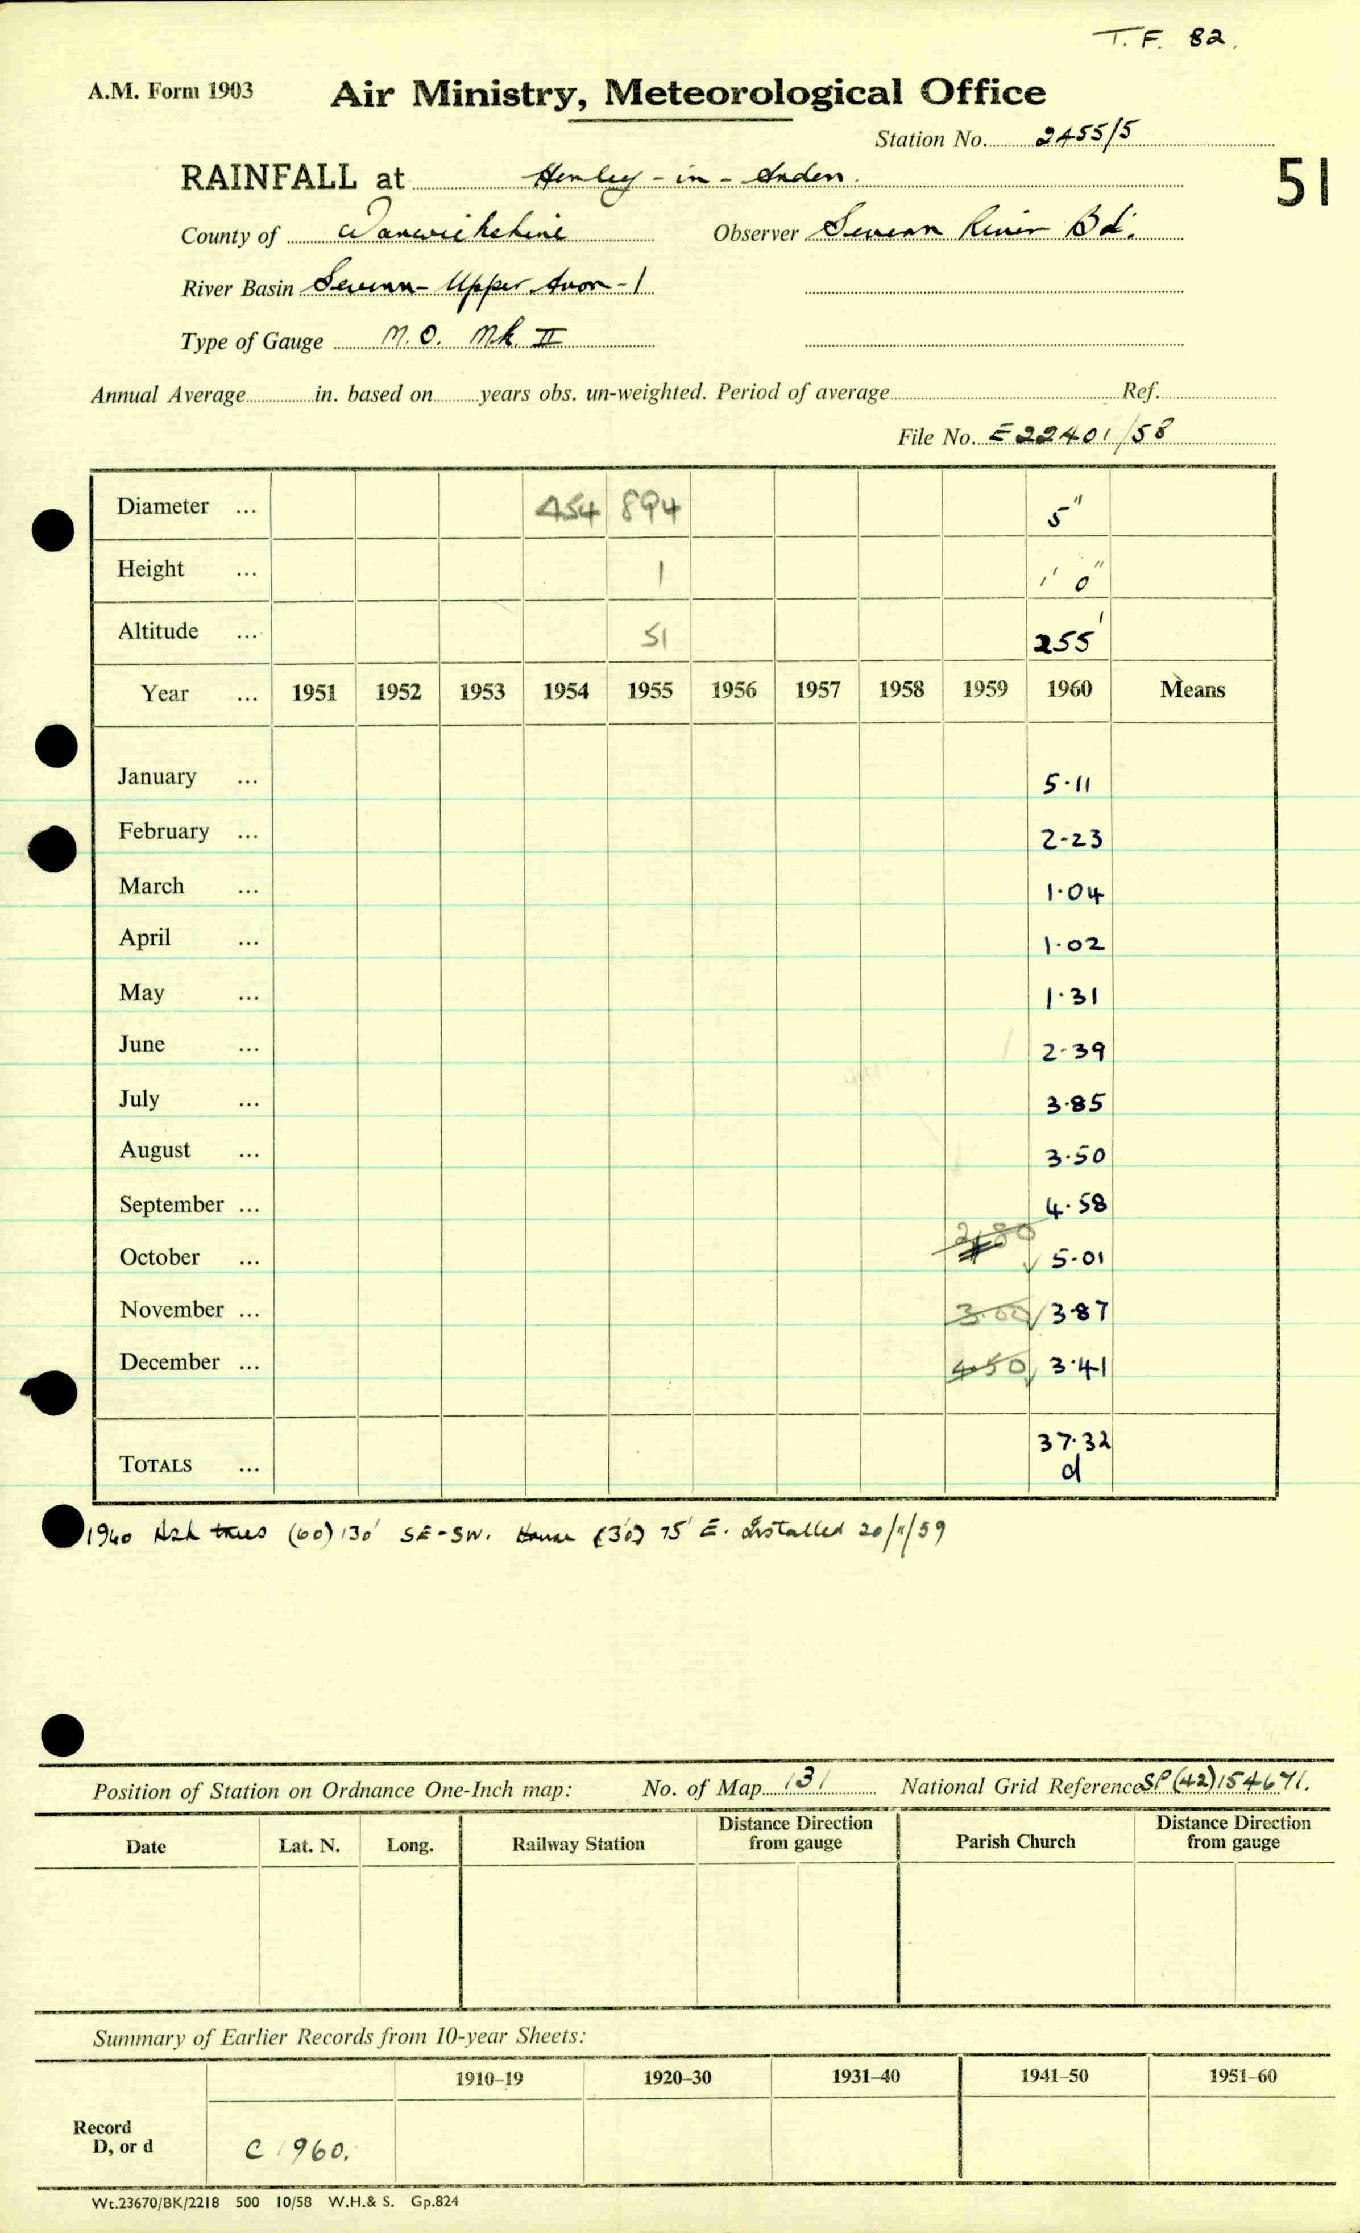 T. F. 82.
A.M. Form 1903
Air Ministry, Meteorological Office
Station No. 2455/5
51
RAINFALL at Henley-in-Arden.
County of Warwickshire Observer Severn River Bd.
River Basin Severn - Upper Avon - 1
Type of Gauge M.O. Mk II
Annual Average in. based on years obs. un-weighted. Period of average Ref.
File No. E22401/58
Diameter ... 454 894 5"
Height ... 1 1' 0"
Altitude ... 51 255'
Year ... 1951 1952 1953 1954 1955 1956 1957 1958 1959 1960 Means
January ... 5·11
February ... 2·23
March ... 1·04
April ... 1·02
May ... 1·31
June ... 2·39
July ... 3·85
August ... 3·50
September ... 4·58
October ... 5·01
November ... 3.00 3·87
December ... 4.50 3·41
TOTALS ... 37·32
d
1960 Ash trees (60) 130' SE-SW. House (30) 75' E. Installed 20/11/59
Position of Station on Ordnance One-Inch map: No. of Map 131 National Grid Reference SP(42)154671.
Date Lat. N. Long. Railway Station Distance Direction from gauge Parish Church Distance Direction from gauge
Summary of Earlier Records from 10-year Sheets:
1910–19 1920–30 1931–40 1941–50 1951–60
Record
D, or d C 1960.
Wt.23670/BK/2218 500 10/58 W.H.& S. Gp.824